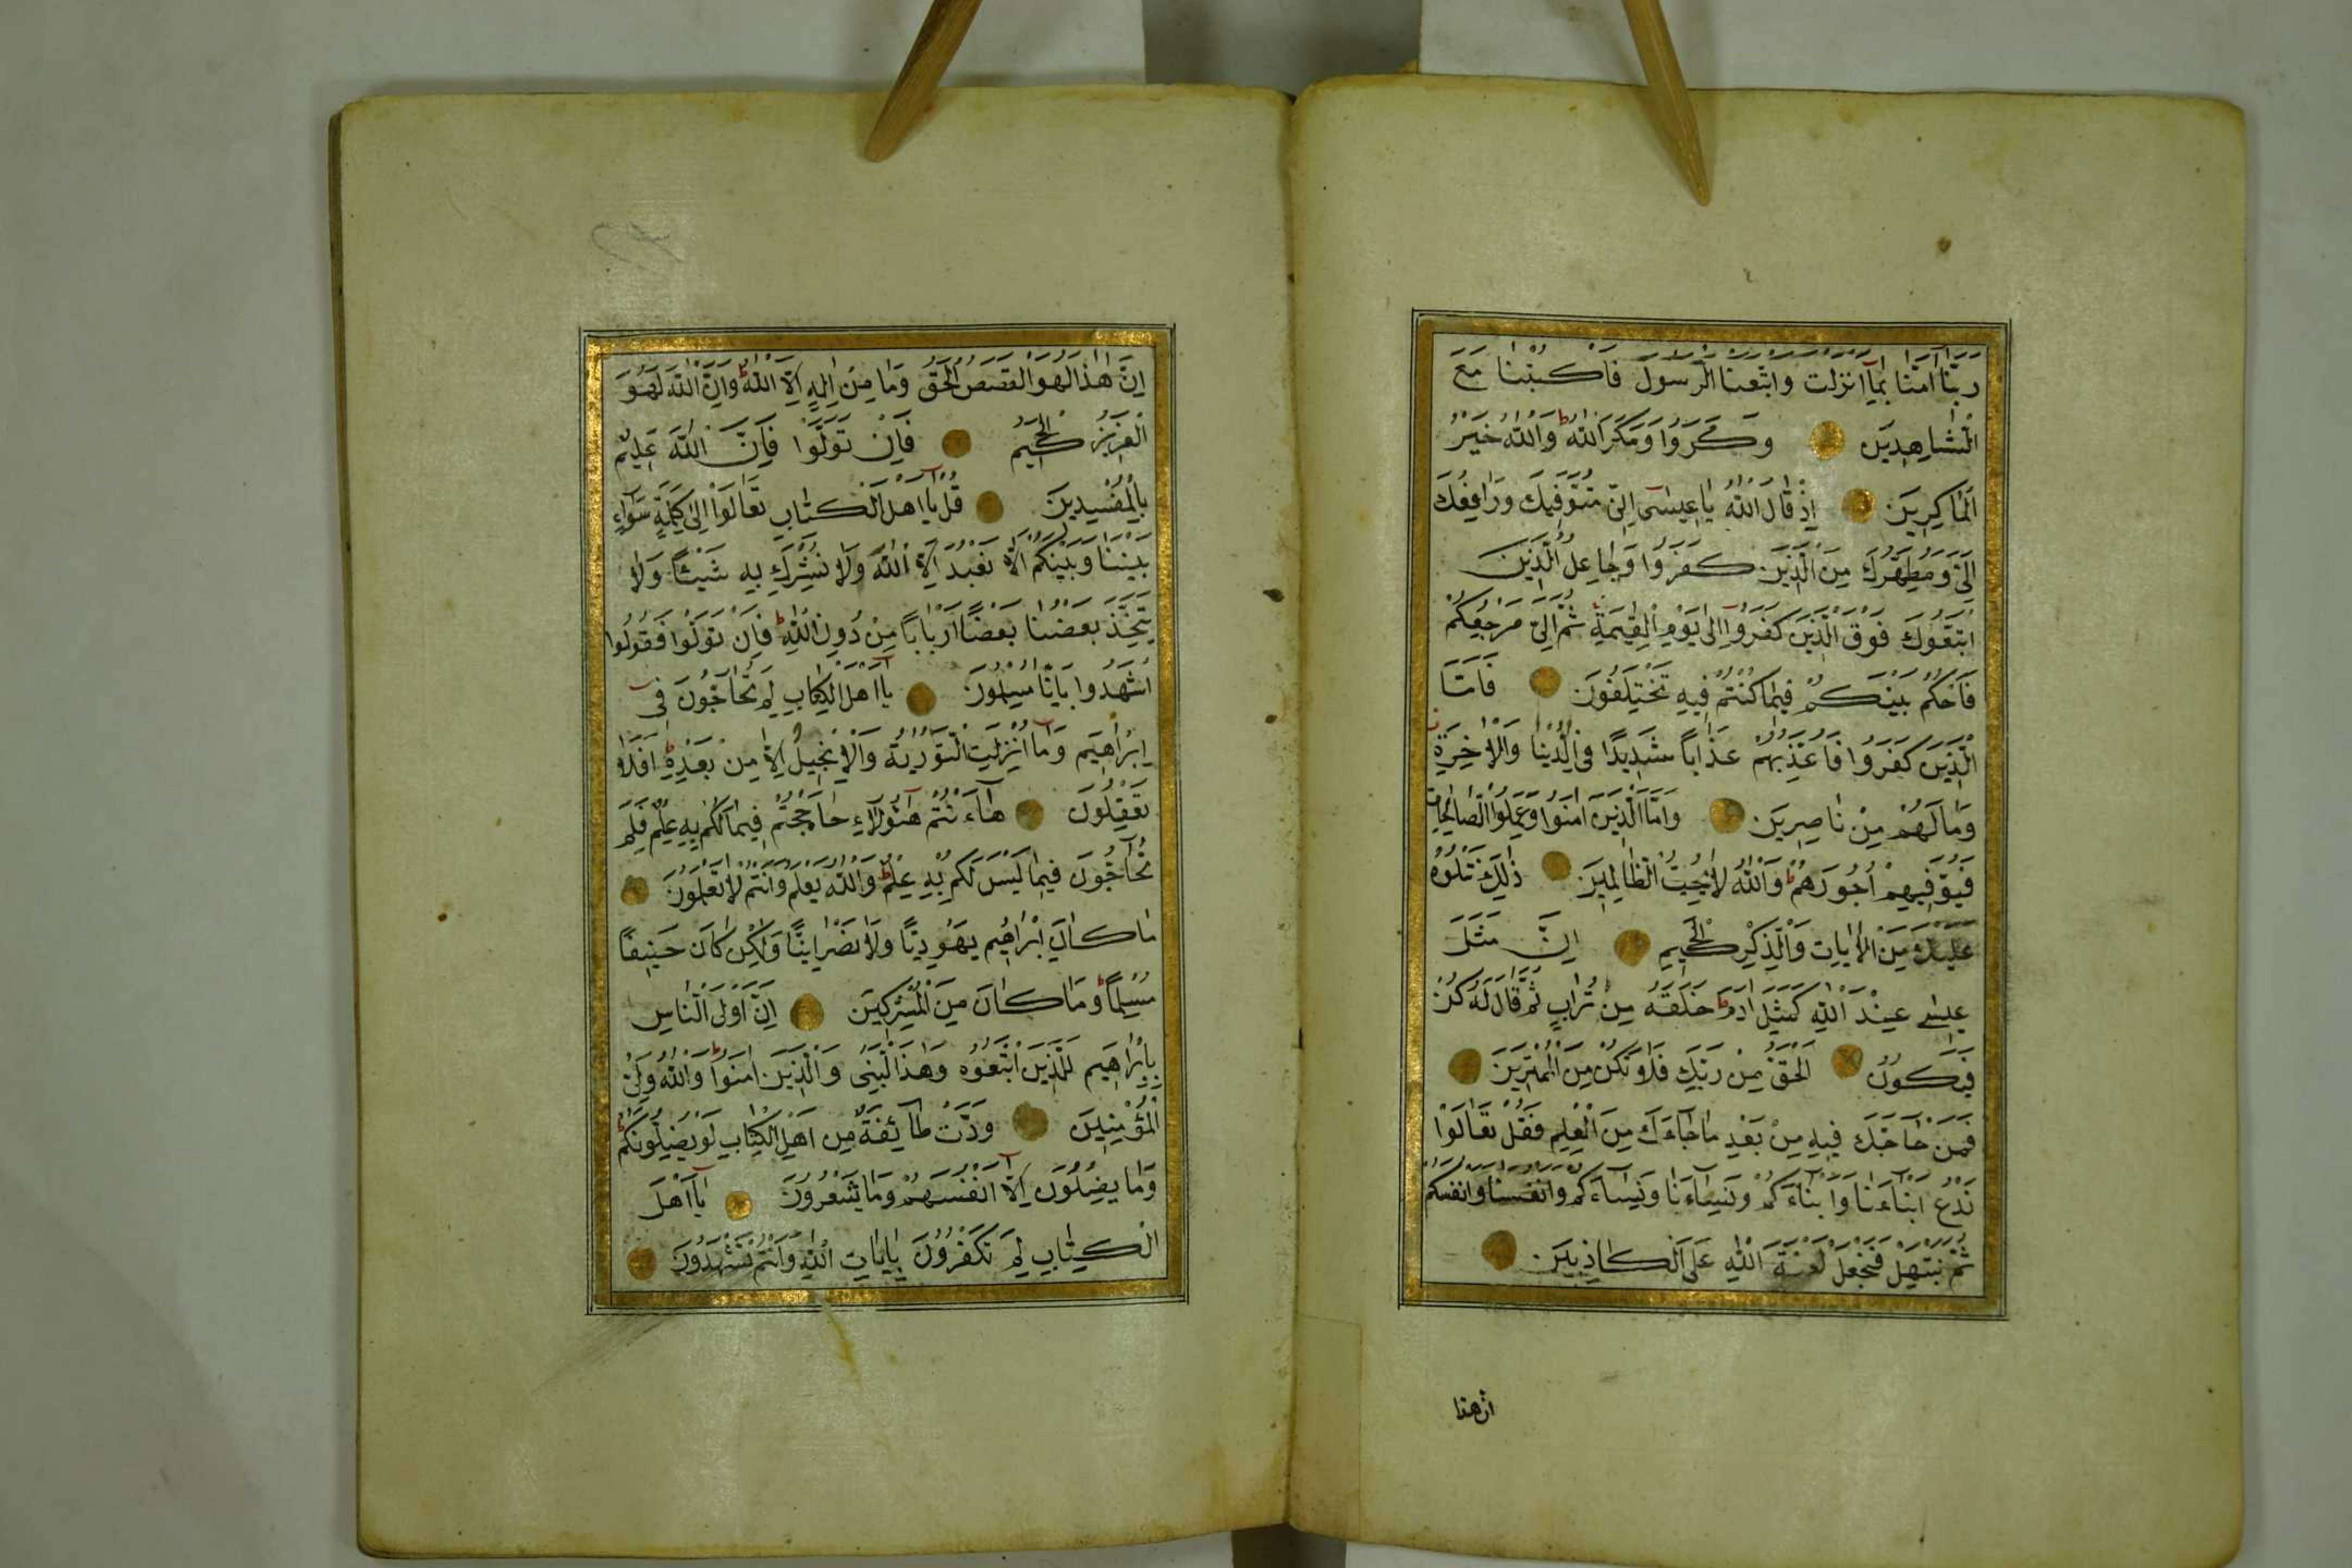 رَبَّنَا آمَنَّا بِمَا أَنْزَلْتَ وَاتَّبَعْنَا الرَّسُولَ فَاكْتُبْنَا مَعَ
الشَّاهِدِينَ وَمَكَرُوا وَمَكَرَ اللَّهُ ط وَاللَّهُ خَيْرُ
الْمَاكِرِينَ إِذْ قَالَ اللَّهُ يَا عِيسَى إِنِّي مُتَوَفِّيكَ وَرَافِعُكَ
إِلَيَّ وَمُطَهِّرُكَ مِنَ الَّذِينَ كَفَرُوا وَجَاعِلُ الَّذِينَ
اتَّبَعُوكَ فَوْقَ الَّذِينَ كَفَرُوا إِلَى يَوْمِ الْقِيٰمَةِ ثُمَّ إِلَيَّ مَرْجِعُكُمْ
فَأَحْكُمُ بَيْنَكُمْ فِيمَا كُنْتُمْ فِيهِ تَخْتَلِفُونَ فَأَمَّا
الَّذِينَ كَفَرُوا فَأُعَذِّبُهُمْ عَذَابًا شَدِيدًا فِي الدُّنْيَا وَالْآخِرَةِ
وَمَا لَهُمْ مِنْ نَاصِرِينَ وَأَمَّا الَّذِينَ آمَنُوا وَعَمِلُوا الصَّالِحَاتِ
فَيُوَفِّيهِمْ أُجُورَهُمْ ط وَاللَّهُ لَا يُحِبُّ الظَّالِمِينَ ذٰلِكَ نَتْلُوهُ
عَلَيْكَ مِنَ الْآيَاتِ وَالذِّكْرِ الْحَكِيمِ إِنَّ مَثَلَ
عِيسَى عِنْدَ اللَّهِ كَمَثَلِ آدَمَ ط خَلَقَهُ مِنْ تُرَابٍ ثُمَّ قَالَ لَهُ كُنْ
فَيَكُونُ الْحَقُّ مِنْ رَبِّكَ فَلَا تَكُنْ مِنَ الْمُمْتَرِينَ
فَمَنْ حَاجَّكَ فِيهِ مِنْ بَعْدِ مَا جَاءَكَ مِنَ الْعِلْمِ فَقُلْ تَعَالَوْا
نَدْعُ أَبْنَاءَنَا وَأَبْنَاءَكُمْ وَنِسَاءَنَا وَنِسَاءَكُمْ وَأَنْفُسَنَا وَأَنْفُسَكُمْ
ثُمَّ نَبْتَهِلْ فَنَجْعَلْ لَعْنَةَ اللَّهِ عَلَى الْكَاذِبِينَ
ان هذا
إِنَّ هٰذَا لَهُوَ الْقَصَصُ الْحَقُّ وَمَا مِنْ إِلٰهٍ إِلَّا اللَّهُ ط وَإِنَّ اللَّهَ لَهُوَ
الْعَزِيزُ الْحَكِيمُ فَإِنْ تَوَلَّوْا فَإِنَّ اللَّهَ عَلِيمٌ
بِالْمُفْسِدِينَ قُلْ يَا أَهْلَ الْكِتَابِ تَعَالَوْا إِلَى كَلِمَةٍ سَوَاءٍ
بَيْنَنَا وَبَيْنَكُمْ أَلَّا نَعْبُدَ إِلَّا اللَّهَ وَلَا نُشْرِكَ بِهِ شَيْئًا وَلَا
يَتَّخِذَ بَعْضُنَا بَعْضًا أَرْبَابًا مِنْ دُونِ اللَّهِ ط فَإِنْ تَوَلَّوْا فَقُولُوا
اشْهَدُوا بِأَنَّا مُسْلِمُونَ يَا أَهْلَ الْكِتَابِ لِمَ تُحَاجُّونَ فِي
إِبْرَاهِيمَ وَمَا أُنْزِلَتِ التَّوْرٰيةُ وَالْإِنْجِيلُ إِلَّا مِنْ بَعْدِهِ ط أَفَلَا
تَعْقِلُونَ هَاءَنْتُمْ هٰؤُلَاءِ حَاجَجْتُمْ فِيمَا لَكُمْ بِهِ عِلْمٌ فَلِمَ
تُحَاجُّونَ فِيمَا لَيْسَ لَكُمْ بِهِ عِلْمٌ ط وَاللَّهُ يَعْلَمُ وَأَنْتُمْ لَا تَعْلَمُونَ
مَا كَانَ إِبْرَاهِيمُ يَهُودِيًّا وَلَا نَصْرَانِيًّا وَلٰكِنْ كَانَ حَنِيفًا
مُسْلِمًا ط وَمَا كَانَ مِنَ الْمُشْرِكِينَ إِنَّ أَوْلَى النَّاسِ
بِإِبْرَاهِيمَ لَلَّذِينَ اتَّبَعُوهُ وَهٰذَا النَّبِيُّ وَالَّذِينَ آمَنُوا ط وَاللَّهُ وَلِيُّ
الْمُؤْمِنِينَ وَدَّتْ طَائِفَةٌ مِنْ أَهْلِ الْكِتَابِ لَوْ يُضِلُّونَكُمْ ط
وَمَا يُضِلُّونَ إِلَّا أَنْفُسَهُمْ وَمَا يَشْعُرُونَ يَا أَهْلَ
الْكِتَابِ لِمَ تَكْفُرُونَ بِآيَاتِ اللَّهِ وَأَنْتُمْ تَشْهَدُونَ